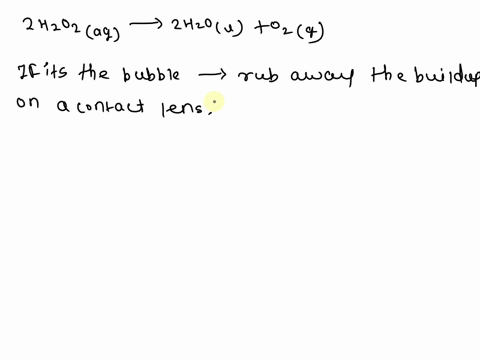 2H2O2(aq) → 2H2O(l) + O2(g)
If its the bubble → rub away the buildup
on a contact lens.